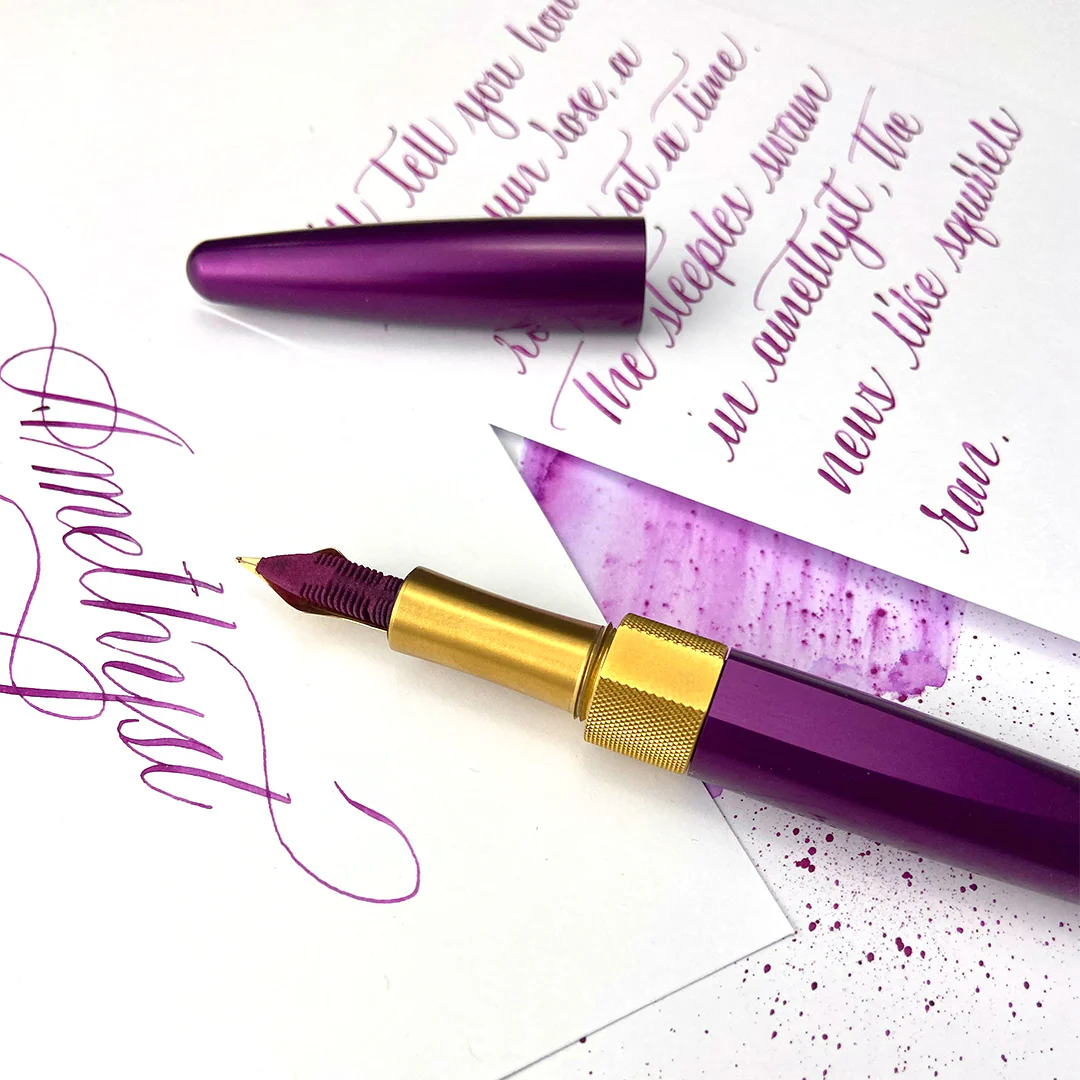 tell you how
sun rose, a
at a time.
The steeples swam
in amethyst, the
news like squirrels
ran.
Amethyst